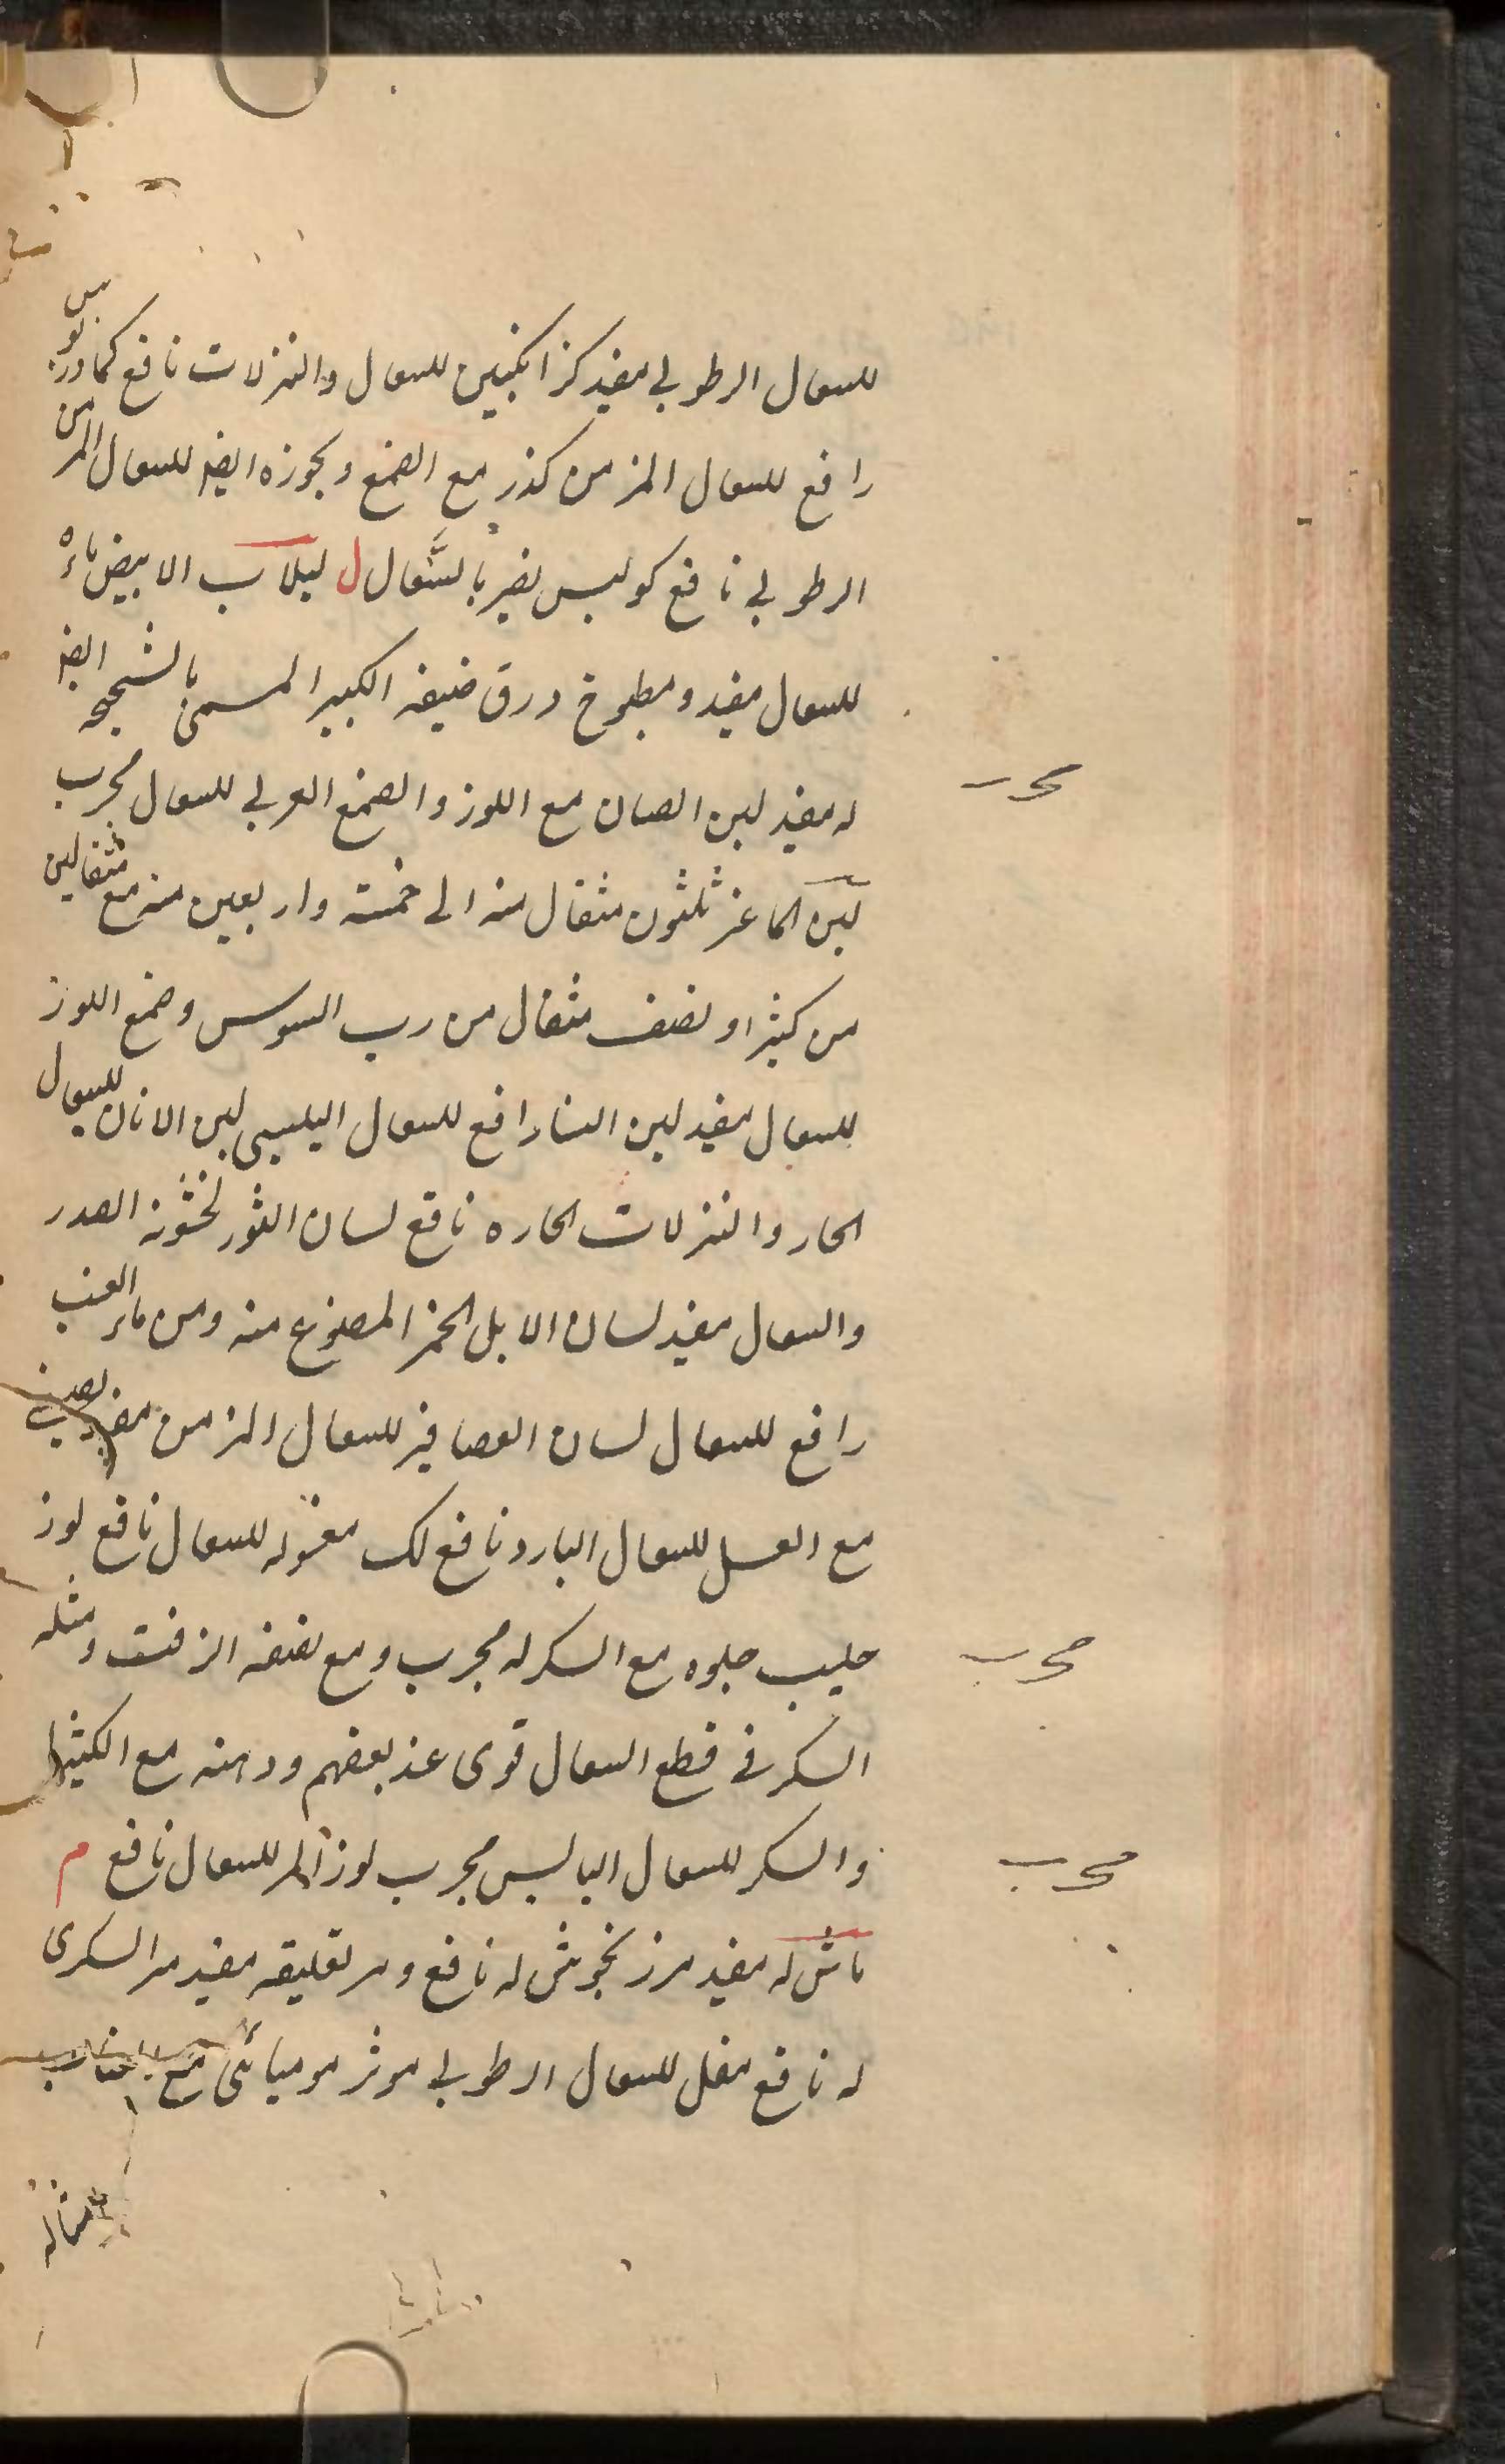 للسعال الرطوبى مفيد كزانكبين للسعال والنزلات نافع كمادريوس
رافع للسعال المزمن كندر مع الصمغ وبجوزه ايضا للسعال المزمن
الرطوبى نافع كرلبس يضر بالسُّعال ل لبلاب الابيض ماؤه
للسعال مفيد ومطبوخ ورق ضيفه الكبير المسمى بالشجيره ايضا
له مفيد لبن الضان مع اللوز والصمغ العربى للسعال مجرب
مجرب
لبن الماعز ثلثون مثقال منه الى خمسة واربعين منه مع مثقالين
من كثيرا ونصف مثقال من رب السوس وصمغ اللوز
للسعال مفيد لبن النسا رافع للسعال اليبسى لبن الاتان للسعال
الحار والنزلات الحاره نافع لسان الثور لخشونة الصدر
والسعال مفيد لسان الابل الخمر المصنوع منه ومن ماء العنب
رافع للسعال لسان العصافير للسعال المزمن مفيد
مع العسل للسعال البارد نافع لك مغسوله للسعال نافع لوز
حليب حلوه مع السكر له مجرب ومع نصفه الزفت ومثله
مجرب
السكر فى قطع السعال قوى عند بعضهم ودهنه مع الكثيرا
والسكر للسعال اليابس مجرب لوز المر للسعال نافع م
مجرب
ماش له مفيد مرزنجوش له نافع ومر تعليقه مفيد مر السكرى
له نافع مقل للسعال الرطوبى موثر موميائى مع